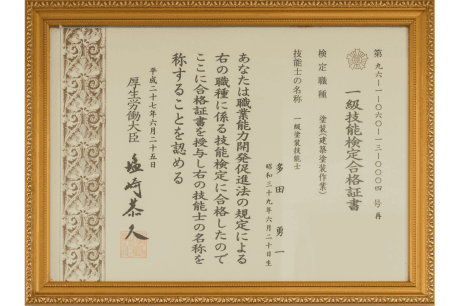 第九六-一-〇六〇-一三-〇〇〇四号再
一級技能検定合格証書
検定職種 塗装(建築塗装作業)
技能士の名称 一級塗装技能士
多田勇一
昭和三十九年六月二十日生
あなたは職業能力開発促進法の規定による
右の職種に係る技能検定に合格したので
ここに合格証書を授与し右の技能士の名称を
称することを認める
平成二十七年六月二十五日
厚生労働大臣 塩崎恭久